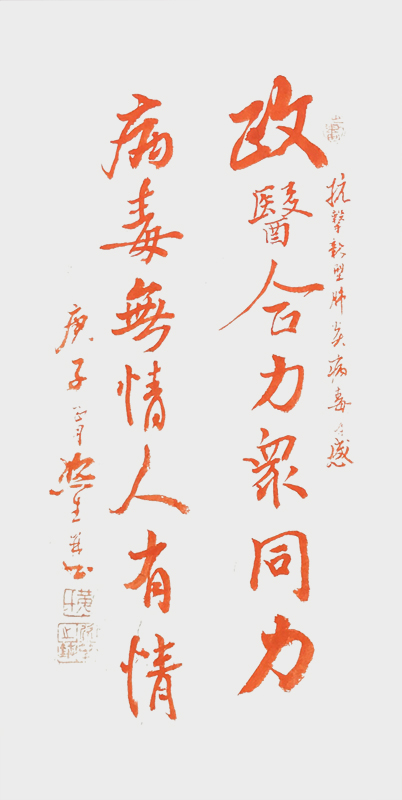 抗擊新型肺炎病毒有感
政醫合力眾同力
病毒無情人有情
庚子